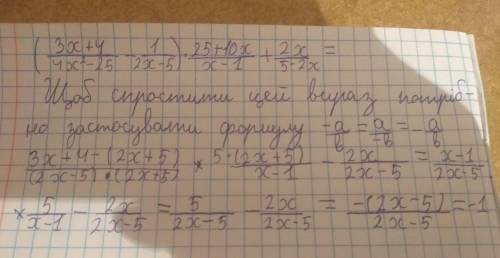 (3x+4/4x²-25 - 1/2x-5) · 25+10x/x-1 + 2x/5-2x =
Щоб спростити цей вираз потріб-
но застосувати формулу -a/b = a/-b = -a/b
3x+4-(2x+5)/(2x-5)·(2x+5) × 5·(2x+5)/x-1 - 2x/2x-5 = x-1/2x-5
× 5/x-1 - 2x/2x-5 = 5/2x-5 - 2x/2x-5 = -(2x-5)/2x-5 = -1